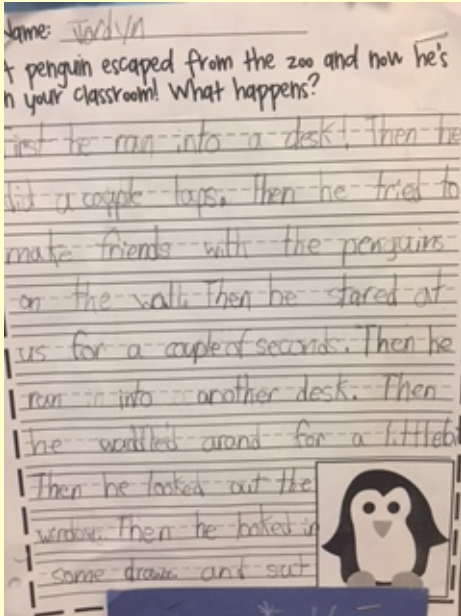 Name: Jordyn
A penguin escaped from the zoo and now he's
in your classroom! What happens?
First he ran into a desk! Then he
did a couple laps. Then he tried to
make friends with the penguins
on the wall. Then he stared at
us for a couple of seconds. Then he
ran into another desk. Then
he waddled arond for a littlebit
Then he looked out the
window. Then he looked in
some drawe and sat